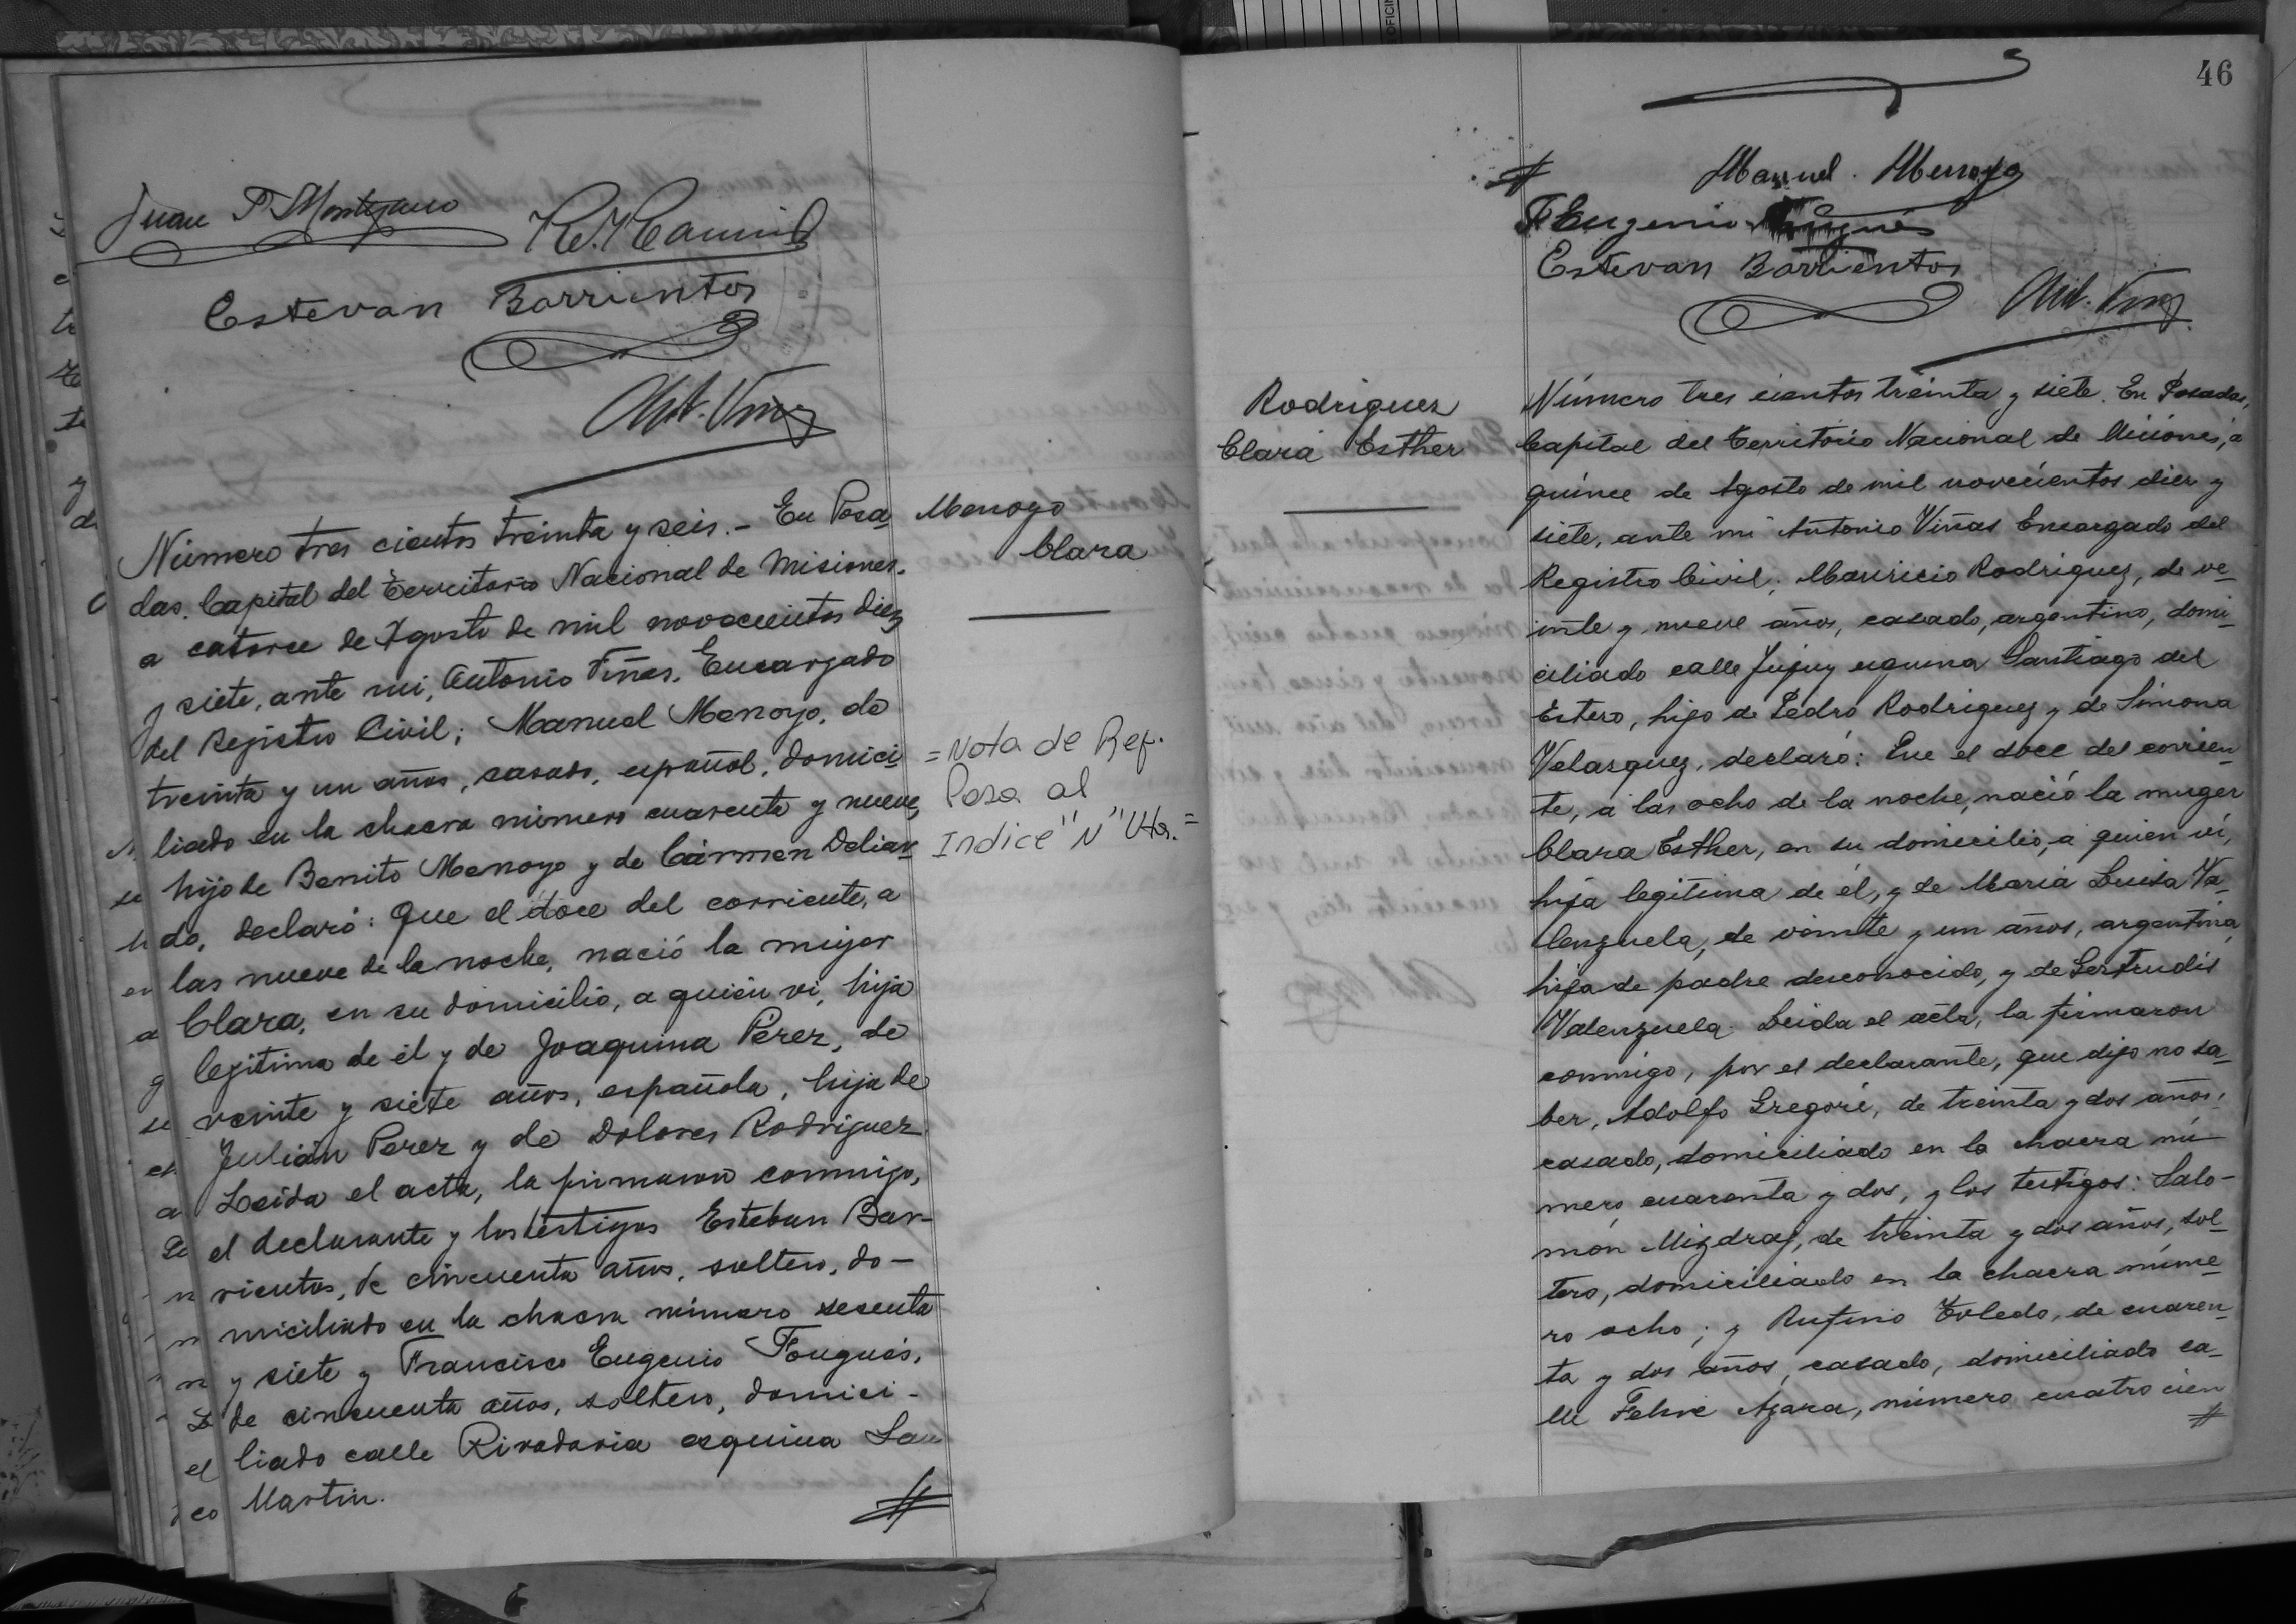 Juan P. Montejano
Estevan Barrientos
Ant. Vinas
Número tres cientos treinta y seis.- En Posa
das. Capital del Territorio Nacional de Misiones.
a catorce de Agosto de mil novecientos diez
y siete, ante mi, Antonio Viñas, Encargado
del Registro Civil; Manuel Menoyo, de
treinta y un años, casado, español, domici
liado en la chacra número cuarenta y nueve,
hijo de Benito Menoyo y de Cármen Deliar
do, declaró: Que el doce del corriente, a
las nueve de la noche, nació la mujer
Clara, en su domicilio, a quien vi, hija
legitima de él y de Joaquina Pérez, de
veinte y siete años, española, hija de
Julián Perez y de Dolores Rodriguez.
Leida el acta, la firmaron conmigo,
el declarante y los testigos Esteban Bar-
rientos, de cincuenta años, soltero, do-
miciliado en la chacra número sesenta
y siete y Francisco Eugenio Fougués,
de cincuenta años, soltero, domici-
liado calle Rivadavia esquina San
Martin.
Menoyo
Clara
= Nota de Ref.
Pasa al
Indice "N" Vta. =
46
Manuel. Menoyo
F Eugenio
Estevan Barrientos
Ant. Vinas
Rodriguez
Clara Esther
Número tres cientos treinta y siete. En Posadas,
Capital del Territorio Nacional de Misiones, a
quince de Agosto de mil novecientos diez y
siete, ante mi Antonio Viñas Encargado del
Registro Civil; Mauricio Rodriguez, de ve-
inte y nueve años, casado, argentino, domi-
ciliado calle Jujuy esquina Santiago del
Estero, hijo de Pedro Rodriguez y de Simona
Velasquez, declaró: Que el doce del corrien-
te, a las ocho de la noche, nació la muger
Clara Esther, en su domicilio, a quien vi,
hija legitima de él, y de Maria Luisa Va-
lenzuela, de veinte y un años, argentina,
hija de padre desconocido, y de Gertrudis
Valenzuela. Leida el acta, la firmaron
conmigo, por el declarante, que dijo no sa-
ber, Adolfo Gregoré, de treinta y dos años,
casado, domiciliado en la chacra nú-
mero cuarenta y dos, y los testigos: Salo-
món Mizdraj, de treinta y dos años, sol-
tero, domiciliado en la chacra núme-
ro ocho; y Rufino Toledo, de cuaren-
ta y dos años, casado, domiciliado ca-
lle Felix Azara, número cuatro cien